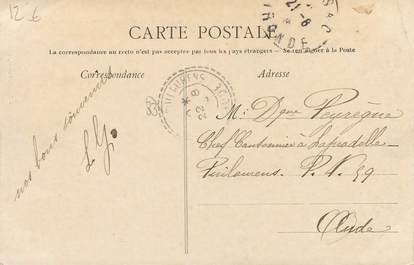 12 €
CARTE POSTALE
La correspondance au recto n'est pas acceptée par tous les pays étrangers — Se renseigner à la Poste
Correspondance
Adresse
21-8
GIRONDE
22 8
nos bons souvenirs
L.G.
M: Dque Peyrègne
Chef Cantonnier à Lapradelle
Puilaurens. P. N 39
Aude